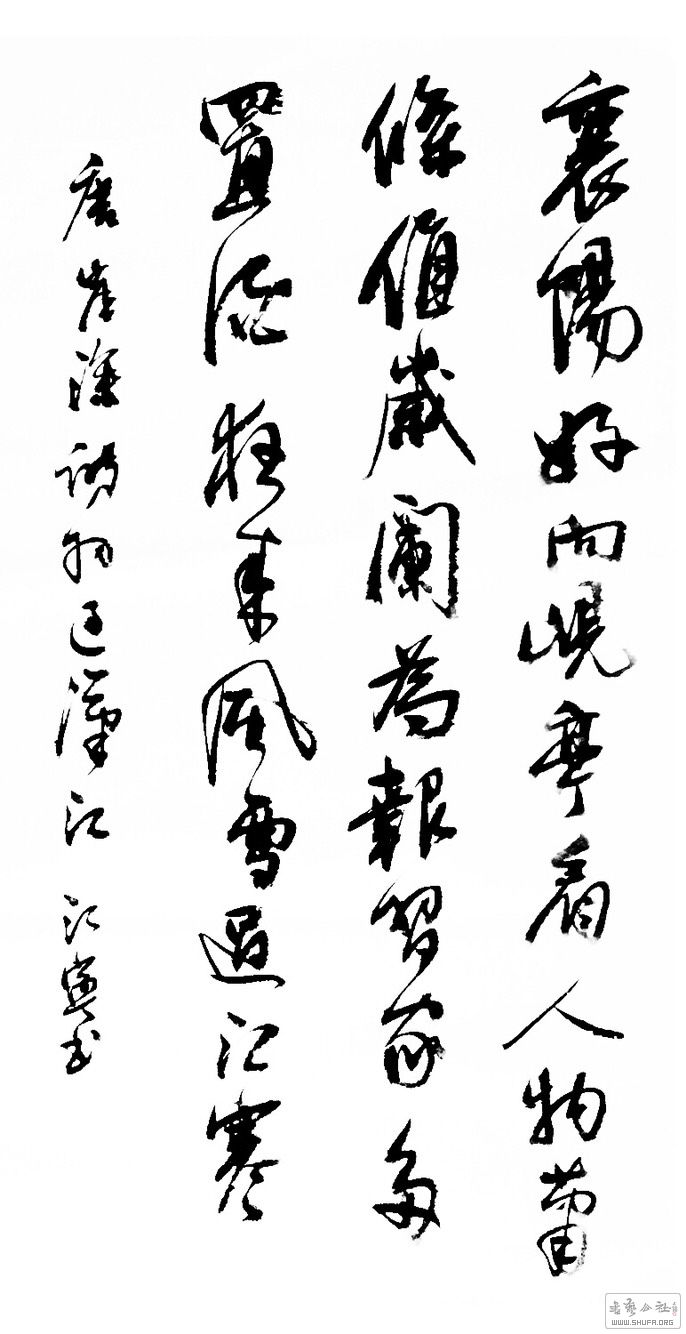 襄陽好向峴亭看人物蕭
條值歲闌為報習家多
置酒夜來風雪過江寒
唐崔塗詩初过漢江 江书
書藝公社
WWW.SHUFA.ORG